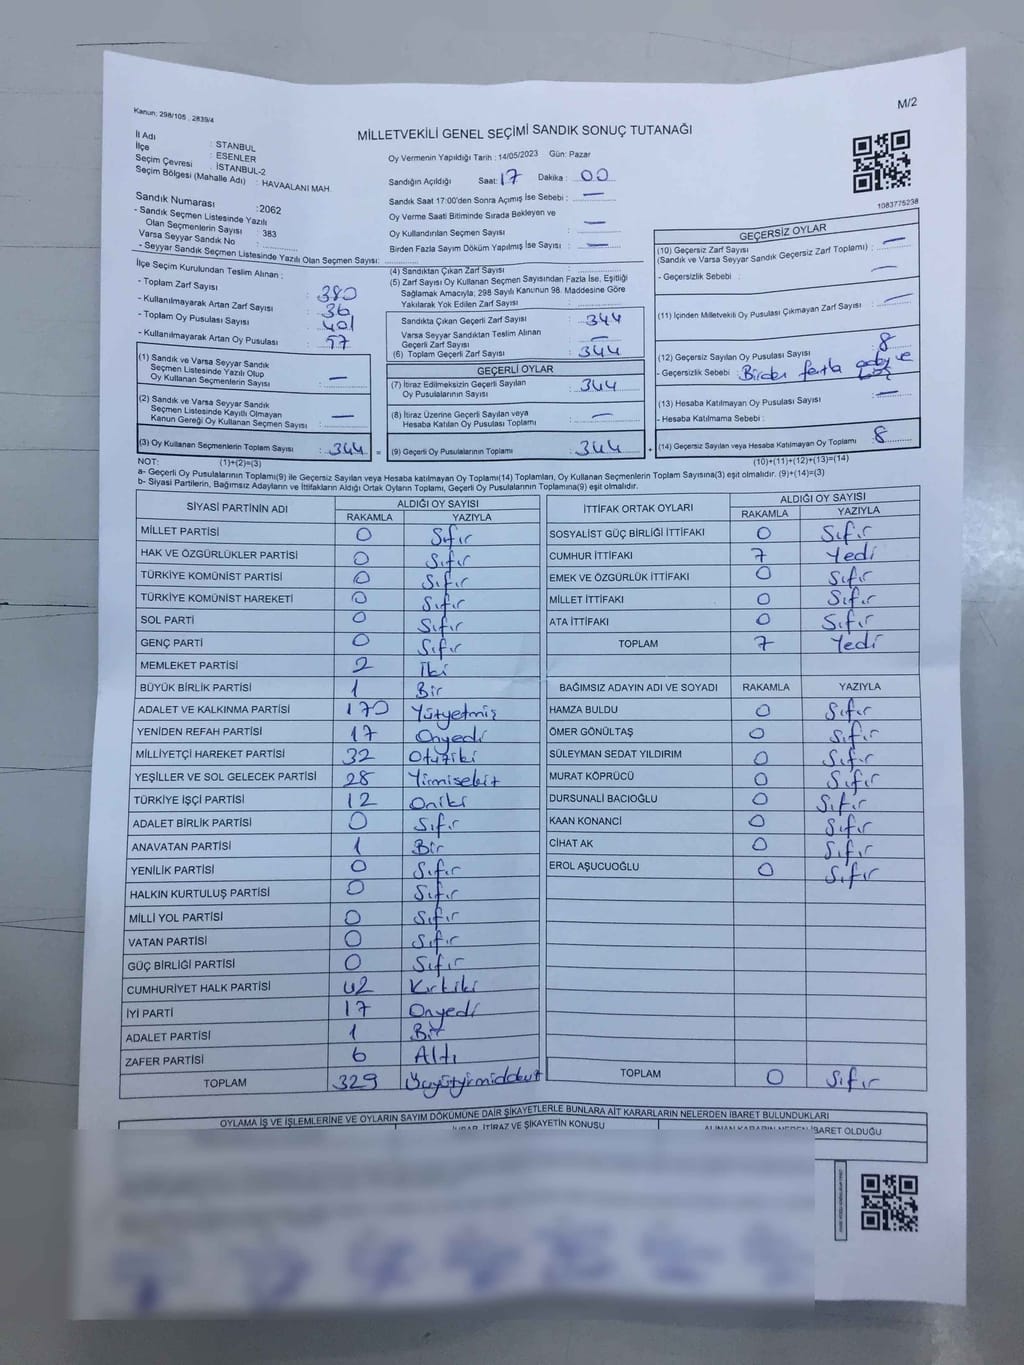 Kanun; 298/105 , 2839/4
M/2
MİLLETVEKİLİ GENEL SEÇİMİ SANDIK SONUÇ TUTANAĞI
İl Adı : STANBUL
İlçe : ESENLER
Seçim Çevresi : İSTANBUL-2
Seçim Bölgesi (Mahalle Adı) : HAVAALANI MAH.
Sandık Numarası : 2062
- Sandık Seçmen Listesinde Yazılı
Olan Seçmenlerin Sayısı : 383
Varsa Seyyar Sandık No :
- Seyyar Sandık Seçmen Listesinde Yazılı Olan Seçmen Sayısı:
Oy Vermenin Yapıldığı Tarih : 14/05/2023 Gün: Pazar
Sandığın Açıldığı Saat: 17 Dakika : 00
Sandık Saat 17:00'den Sonra Açımış İse Sebebi : —
Oy Verme Saati Bitiminde Sırada Bekleyen ve
Oy Kullandırılan Seçmen Sayısı : —
Birden Fazla Sayım Döküm Yapılmış İse Sayısı : —
1083775238
İlçe Seçim Kurulundan Teslim Alınan :
- Toplam Zarf Sayısı : 380
- Kullanılmayarak Artan Zarf Sayısı : 36
- Toplam Oy Pusulası Sayısı : 401
- Kullanılmayarak Artan Oy Pusulası : 57
(1) Sandık ve Varsa Seyyar Sandık
Seçmen Listesinde Yazılı Olup
Oy Kullanan Seçmenlerin Sayısı : —
(2) Sandık ve Varsa Seyyar Sandık
Seçmen Listesinde Kayıtlı Olmayan
Kanun Gereği Oy Kullanan Seçmen Sayısı : —
(3) Oy Kullanan Seçmenlerin Toplam Sayısı : 344
(4) Sandıktan Çıkan Zarf Sayısı :
(5) Zarf Sayısı Oy Kullanan Seçmen Sayısından Fazla İse, Eşitliği
Sağlamak Amacıyla; 298 Sayılı Kanunun 98. Maddesine Göre
Yakılarak Yok Edilen Zarf Sayısı :
Sandıkta Çıkan Geçerli Zarf Sayısı : 344
Varsa Seyyar Sandıktan Teslim Alınan
Geçerli Zarf Sayısı : —
(6) Toplam Geçerli Zarf Sayısı : 344
GEÇERLİ OYLAR
(7) İtiraz Edilmeksizin Geçerli Sayılan
Oy Pusulalarının Sayısı : 344
(8) İtiraz Üzerine Geçerli Sayılan veya
Hesaba Katılan Oy Pusulası Toplamı : —
= (9) Geçerli Oy Pusulalarının Toplamı : 344 +
GEÇERSİZ OYLAR
(10) Geçersiz Zarf Sayısı
(Sandık ve Varsa Seyyar Sandık Geçersiz Zarf Toplamı) : —
- Geçersizlik Sebebi : —
(11) İçinden Milletvekili Oy Pusulası Çıkmayan Zarf Sayısı : —
(12) Geçersiz Sayılan Oy Pusulası Sayısı : 8
- Geçersizlik Sebebi : Birden fazla ve
(13) Hesaba Katılmayan Oy Pusulası Sayısı : —
- Hesaba Katılmama Sebebi :
(14) Geçersiz Sayılan veya Hesaba Katılmayan Oy Toplamı : 8
NOT: (1)+(2)=(3) (10)+(11)+(12)+(13)=(14)
a- Geçerli Oy Pusulalarının Toplamı(9) ile Geçersiz Sayılan veya Hesaba katılmayan Oy Toplamı(14) Toplamları, Oy Kullanan Seçmenlerin Toplam Sayısına(3) eşit olmalıdır. (9)+(14)=(3)
b- Siyasi Partilerin, Bağımsız Adayların ve İttifakların Aldığı Ortak Oyların Toplamı, Geçerli Oy Pusulalarının Toplamına(9) eşit olmalıdır.
SİYASİ PARTİNİN ADI ALDIĞI OY SAYISI
RAKAMLA YAZIYLA
MİLLET PARTİSİ 0 Sıfır
HAK VE ÖZGÜRLÜKLER PARTİSİ 0 Sıfır
TÜRKİYE KOMÜNİST PARTİSİ 0 Sıfır
TÜRKİYE KOMÜNİST HAREKETİ 0 Sıfır
SOL PARTİ 0 Sıfır
GENÇ PARTİ 0 Sıfır
MEMLEKET PARTİSİ 2 İki
BÜYÜK BİRLİK PARTİSİ 1 Bir
ADALET VE KALKINMA PARTİSİ 170 Yüzyetmiş
YENİDEN REFAH PARTİSİ 17 Onyedi
MİLLİYETÇİ HAREKET PARTİSİ 32 Otuziki
YEŞİLLER VE SOL GELECEK PARTİSİ 28 Yirmisekiz
TÜRKİYE İŞÇİ PARTİSİ 12 Oniki
ADALET BİRLİK PARTİSİ 0 Sıfır
ANAVATAN PARTİSİ 1 Bir
YENİLİK PARTİSİ 0 Sıfır
HALKIN KURTULUŞ PARTİSİ 0 Sıfır
MİLLİ YOL PARTİSİ 0 Sıfır
VATAN PARTİSİ 0 Sıfır
GÜÇ BİRLİĞİ PARTİSİ 0 Sıfır
CUMHURİYET HALK PARTİSİ 42 Kırkiki
İYİ PARTİ 17 Onyedi
ADALET PARTİSİ 1 Bir
ZAFER PARTİSİ 6 Altı
TOPLAM 329
İTTİFAK ORTAK OYLARI ALDIĞI OY SAYISI
RAKAMLA YAZIYLA
SOSYALİST GÜÇ BİRLİĞİ İTTİFAKI 0 Sıfır
CUMHUR İTTİFAKI 7 Yedi
EMEK VE ÖZGÜRLÜK İTTİFAKI 0 Sıfır
MİLLET İTTİFAKI 0 Sıfır
ATA İTTİFAKI 0 Sıfır
TOPLAM 7 Yedi
BAĞIMSIZ ADAYIN ADI VE SOYADI RAKAMLA YAZIYLA
HAMZA BULDU 0 Sıfır
ÖMER GÖNÜLTAŞ 0 Sıfır
SÜLEYMAN SEDAT YILDIRIM 0 Sıfır
MURAT KÖPRÜCÜ 0 Sıfır
DURSUNALİ BACIOĞLU 0 Sıfır
KAAN KONANCİ 0 Sıfır
CİHAT AK 0 Sıfır
EROL AŞUCUOĞLU 0 Sıfır
TOPLAM 0 Sıfır
OYLAMA İŞ VE İŞLEMLERİNE VE OYLARIN SAYIM DÖKÜMÜNE DAİR ŞİKAYETLERLE BUNLARA AİT KARARLARIN NELERDEN İBARET BULUNDUKLARI
İTİRAZ VE ŞİKAYETİN KONUSU
İBARET OLDUĞU